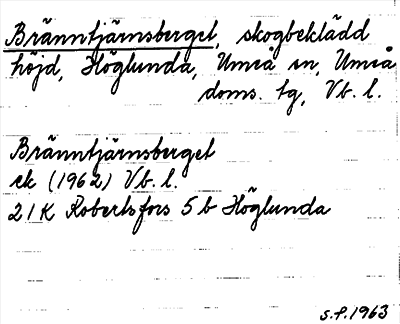 Bränntjärnsberget, skogbeklädd
höjd, Höglunda, Umeå sn, Umeå
doms. tg, Vb. l.
Bränntjärnsberget
ek (1962) Vb. l.
21K Robertsfors 5b Höglunda
S.P. 1963